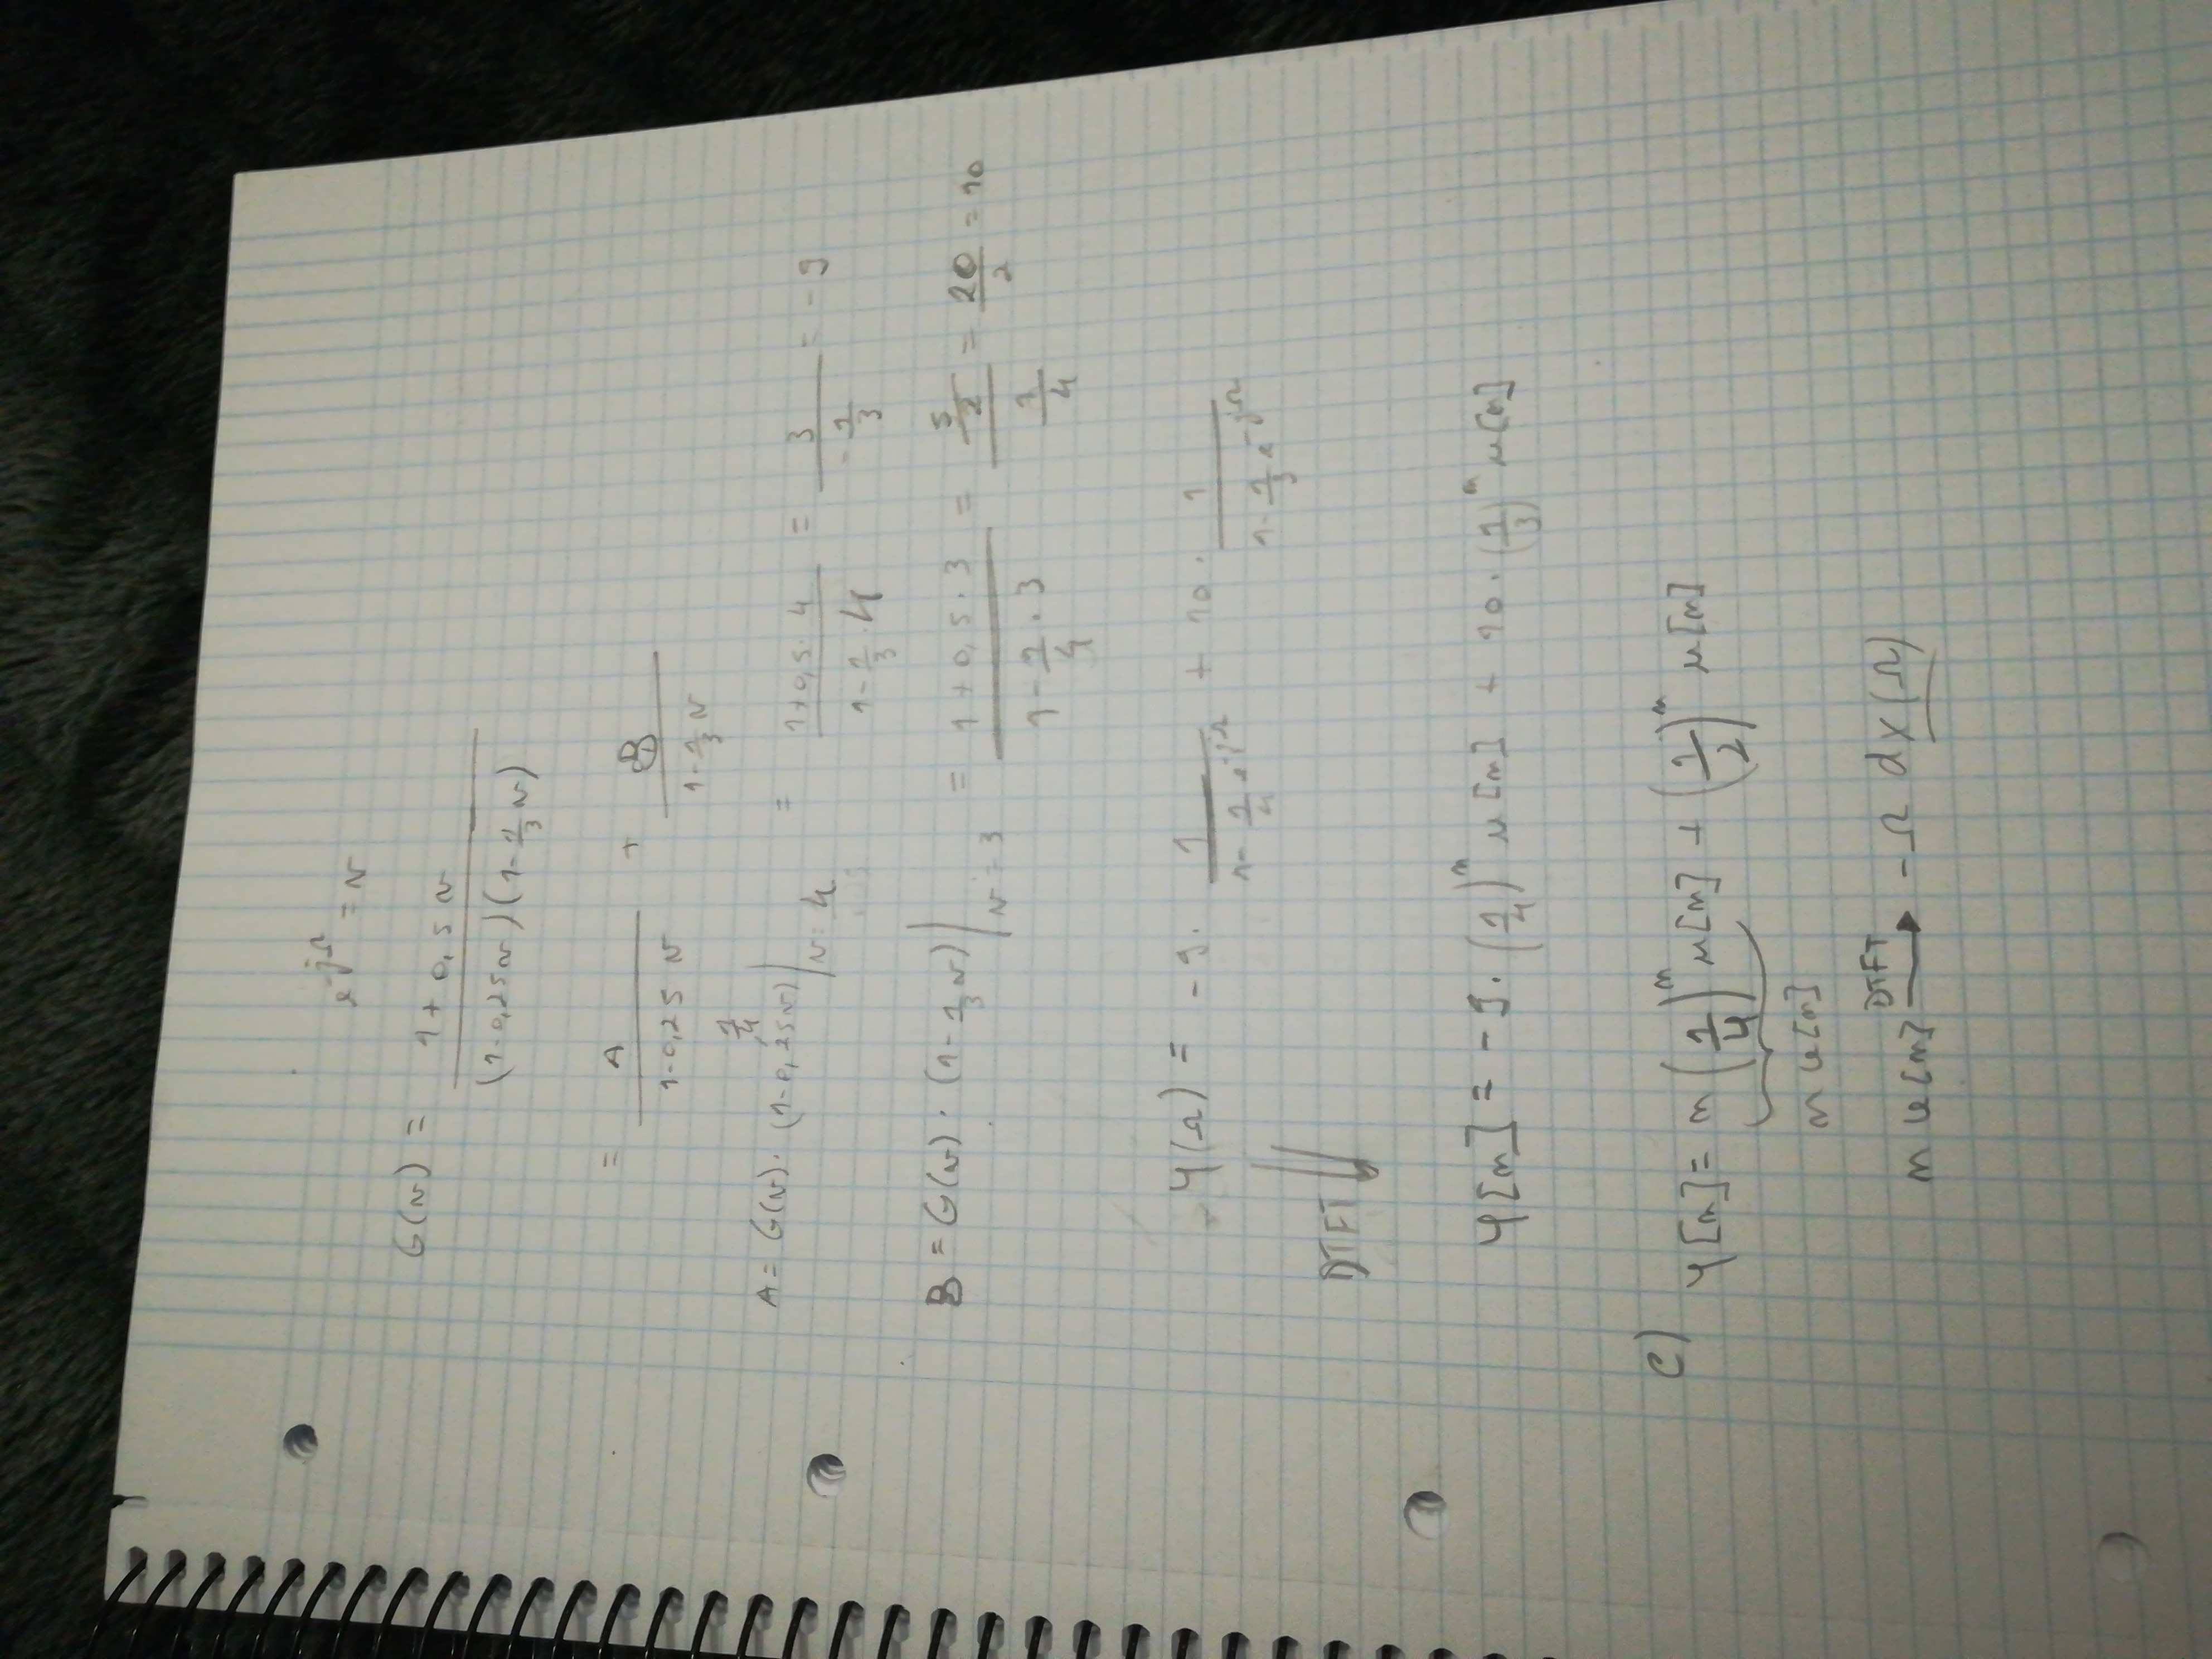 e^{-jΩ} = v
G(v) = \frac{1+0,5v}{(1-0,25v)(1-\frac{1}{3}v)}
= \frac{A}{1-0,25v} + \frac{B}{1-\frac{1}{3}v}
\frac{1}{4}
A = G(v) · (1-0,25v)|_{v=4} = \frac{1+0,5·4}{1-\frac{1}{3}·4} = \frac{3}{-\frac{1}{3}} = -9
B = G(v) · (1-\frac{1}{3}v)|_{v=3} = \frac{1+0,5·3}{1-\frac{1}{4}·3} = \frac{\frac{5}{2}}{\frac{1}{4}} = \frac{20}{2} = 10
Y(Ω) = -9 · \frac{1}{1-\frac{1}{4}e^{-jΩ}} + 10 · \frac{1}{1-\frac{1}{3}e^{-jΩ}}
DTFT ⇓
y[n] = -9 · (\frac{1}{4})^n u[n] + 10 · (\frac{1}{3})^n u[n]
c) y[n] = n(\frac{1}{4})^n u[n] + (\frac{1}{2})^n u[n]
DTFT
→ -Ω dX(Ω)